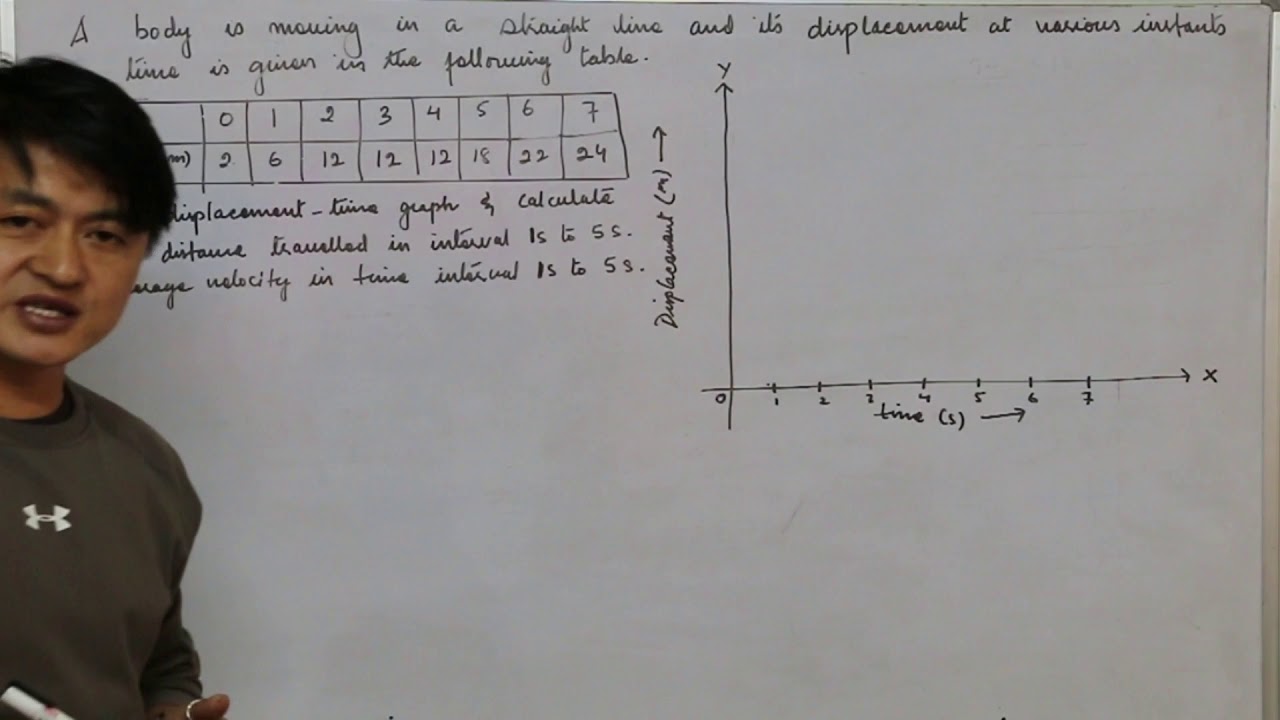 A body is moving in a straight line and its displacement at various instants
time is given in the following table.
0 1 2 3 4 5 6 7
m) 2 6 12 12 12 18 22 24
displacement-time graph & calculate
distance travelled in interval 1s to 5s.
erage velocity in time interval 1s to 5s.
Y
Displacement (m) →
0 1 2 3 4 5 6 7 X
time (s) →